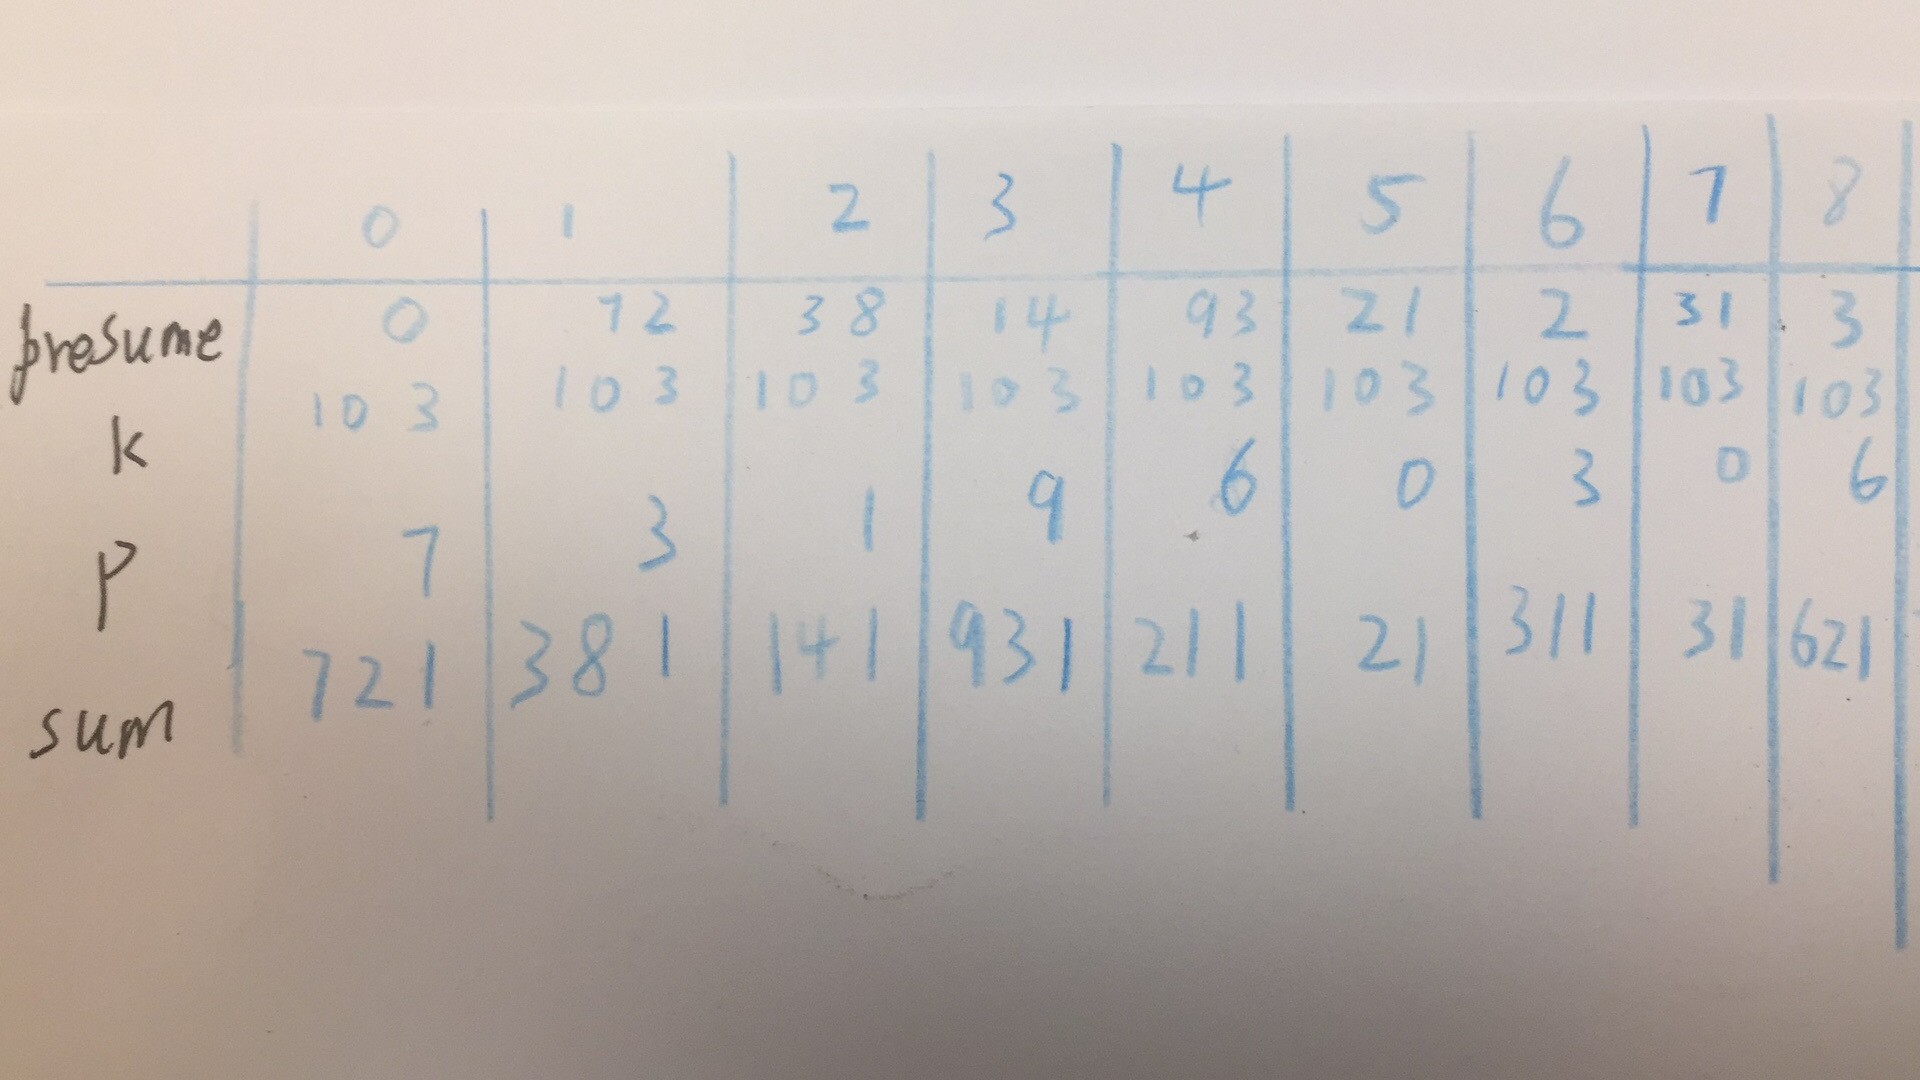 0 1 2 3 4 5 6 7 8
presume 0 72 38 14 93 21 2 31 3
k 103 103 103 103 103 103 103 103 103
p 7 3 1 9 6 0 3 0 6
sum 721 381 141 931 211 21 311 31 621